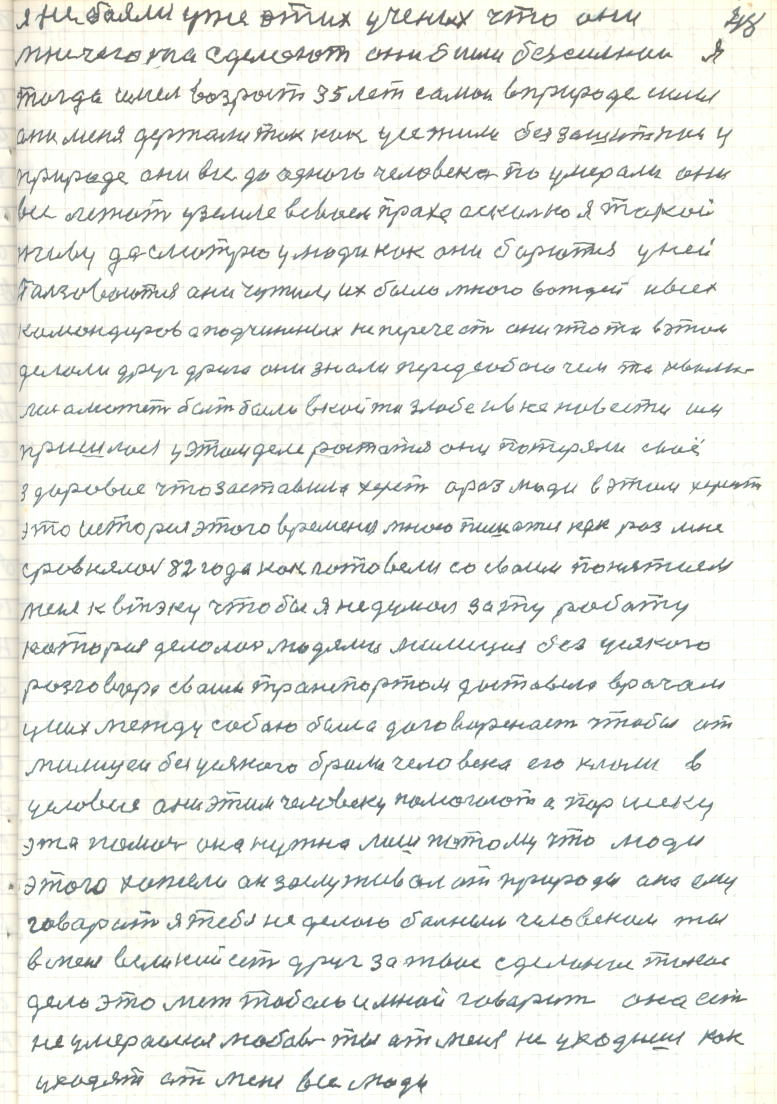 я не баяли уже этих ученых что они
мничего та сделоют они были безсилнии Я
тогда имел возрост 35 лет самои вприроде сили
они меня держали ток как усе жили без защитнии у
природе они все до одного человека по умерали они
все лежат уземле всвоем прахе осколко я токой
живу да смотрю улюди как они борются у ней
они чужим их было много вождей ивсех
командиров а подчинених не перечест они что та вэтом
делоли друг друга они знали перед собою чем та хвали-
лис аможет быт было вкой та злобе им
пришлося уэтом деле они потеряли своё
здоровие что заставила харет ораз люди в этом
это история этого времени мною пишится как роз мне
сровнялос 82 года как готовели со своим понятием
меня к втэку чтобы я недумол за ту роботу
котория делолас людями милиция без усякого
розговора своим транспортом доставела врачам
уних между собою была договоренаст чтобы от
милицеи без усякого брали человека его клоли в
условие они этим человеку помогоют а пор шеку
эта помоч она нужна лиш потому что люди
этого хотели он заслуживал от природы она ему
говарит я тебя не делою болним человеком ты
вмене великий ест друг за твое сделоние токое
дело это мет тобою имной говарит она ест
не умераемоя любов ты от меня не уходиш как
уходят от мене все люди